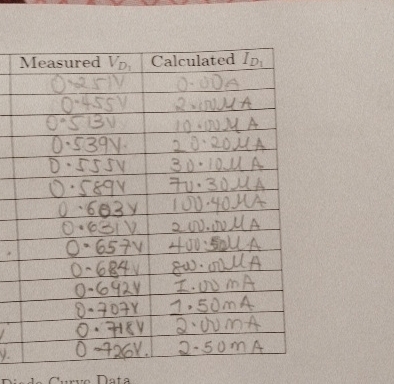 Measured V_D1 Calculated I_D1
0.251V 0.00A
0.455V 2.10MA
0.513V 10.00MA
0.539V. 20.20MA
0.555V 30.10MA
0.589V 70.30MA
0.603V 100.40MA
0.631V 200.00MA
0.657V 400.50MA
0.684V 800.00MA
0.692V 1.00mA
0.707V 1.50mA
0.718V 2.00mA
0.726V. 2.50mA
Diode Curve Data